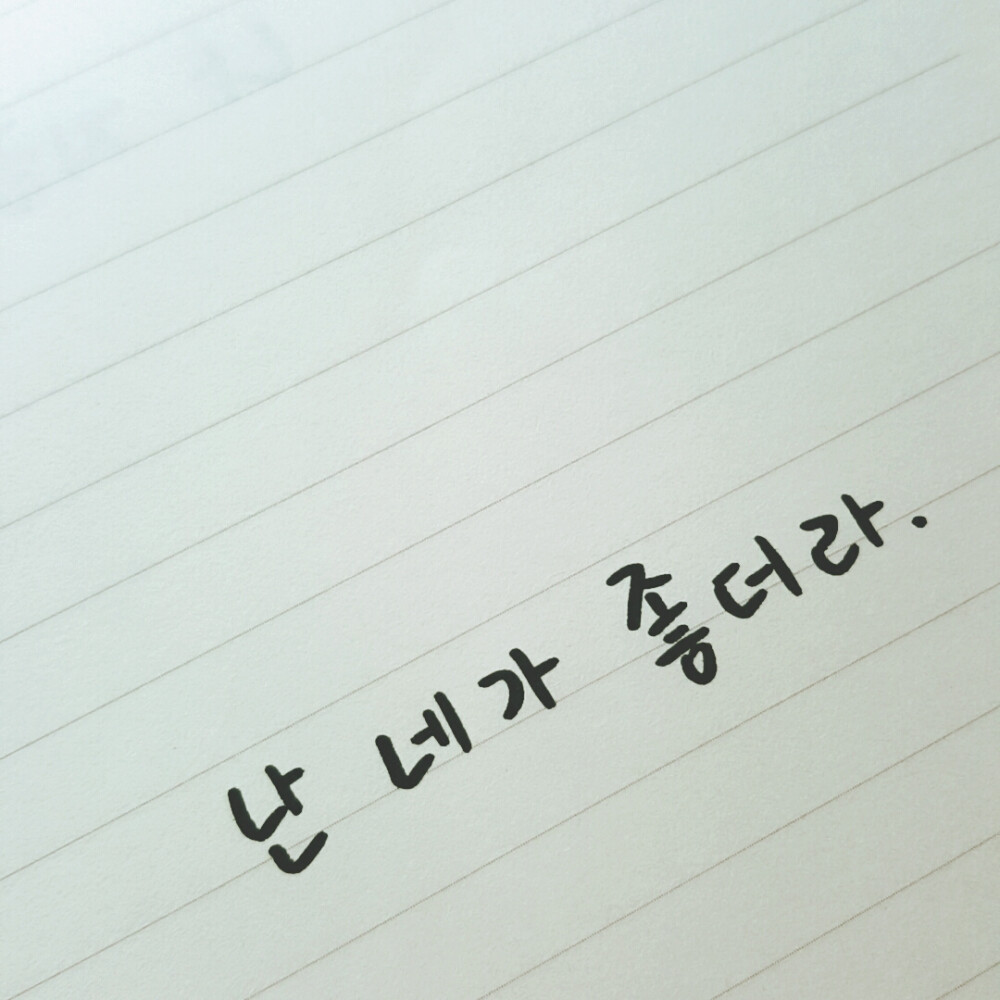 난 네가 좋더라.